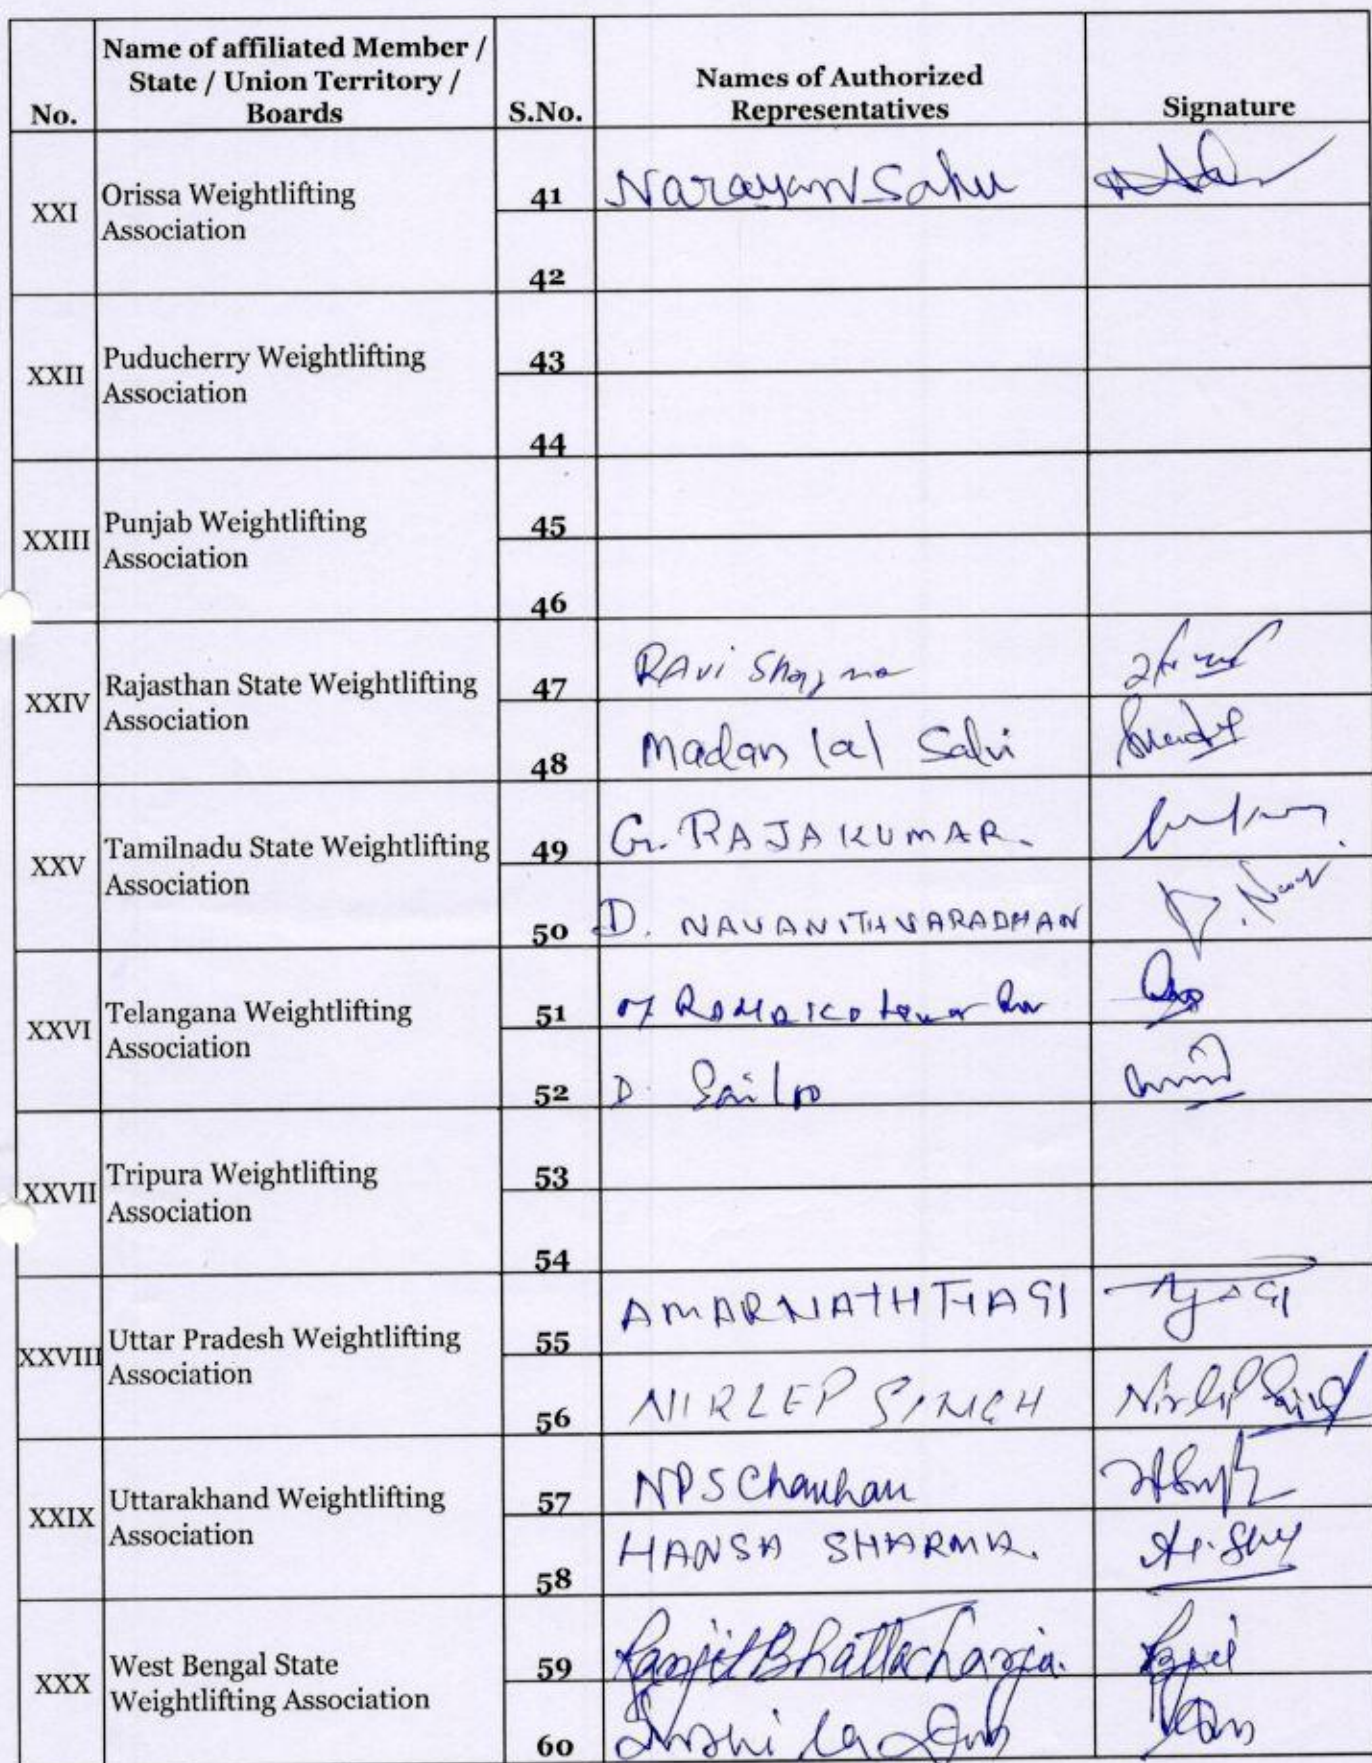 No.
Name of affiliated Member /
State / Union Territory /
Boards
S.No.
Names of Authorized
Representatives
Signature
XXI
Orissa Weightlifting
Association
41
Narayan Sahu
42
XXII
Puducherry Weightlifting
Association
43
44
XXIII
Punjab Weightlifting
Association
45
46
XXIV
Rajasthan State Weightlifting
Association
47
RAvi Sharma
48
Madan lal Salvi
XXV
Tamilnadu State Weightlifting
Association
49
G. RAJAKUMAR.
50
D. NAVANITHVARADHAN
XXVI
Telangana Weightlifting
Association
51
52
D.
XXVII
Tripura Weightlifting
Association
53
54
XXVIII
Uttar Pradesh Weightlifting
Association
55
AMARNATH TYAGI
TyAGI
56
NIRLEP SINGH
Nirlep Singh
XXIX
Uttarakhand Weightlifting
Association
57
NPS Chauhan
58
HANSA SHARMA.
XXX
West Bengal State
Weightlifting Association
59
Ranjit Bhattacharja.
60